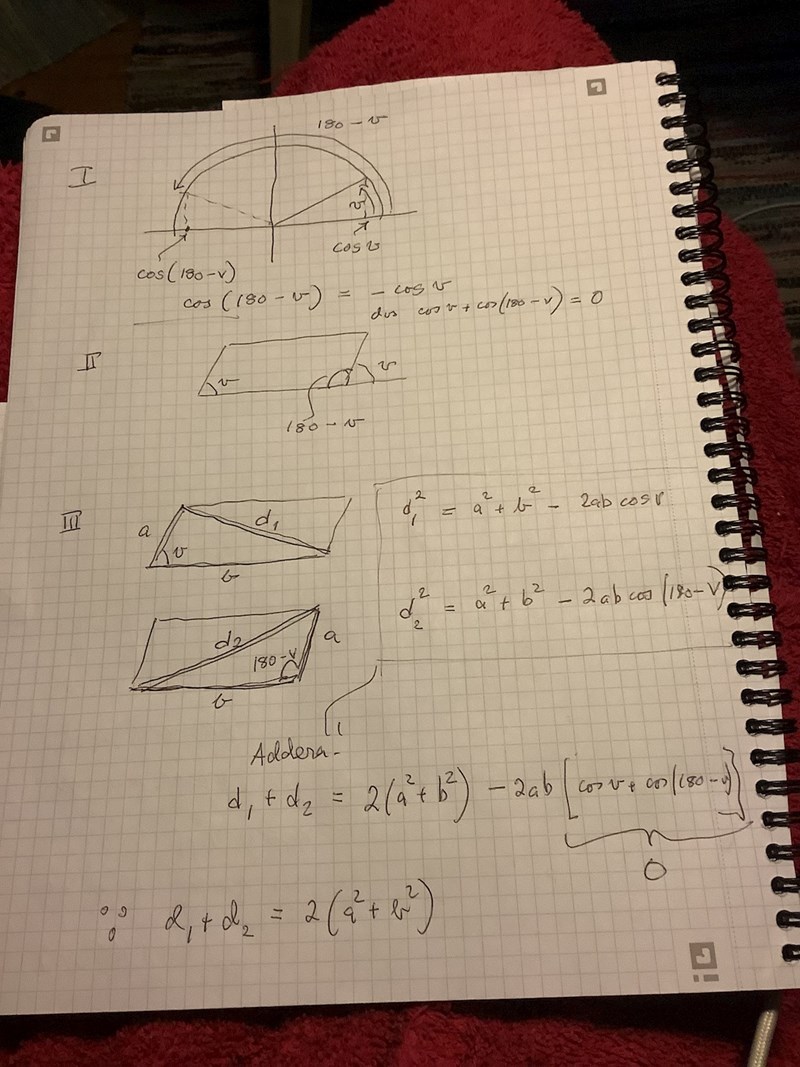 I
180 - v
v
cos v
cos(180-v)
cos (180 - v) = - cos v
dvs cos v + cos(180-v) = 0
II
v
v
180 - v
III
a
d₁
v
b
d₁² = a² + b² - 2ab cos v
d₂² = a² + b² - 2ab cos (180-v)
d₂
a
180-v
b
Addera
d₁ + d₂ = 2(a² + b²) - 2ab [cos v + cos(180-v)]
0
∵ d₁ + d₂ = 2(a² + b²)